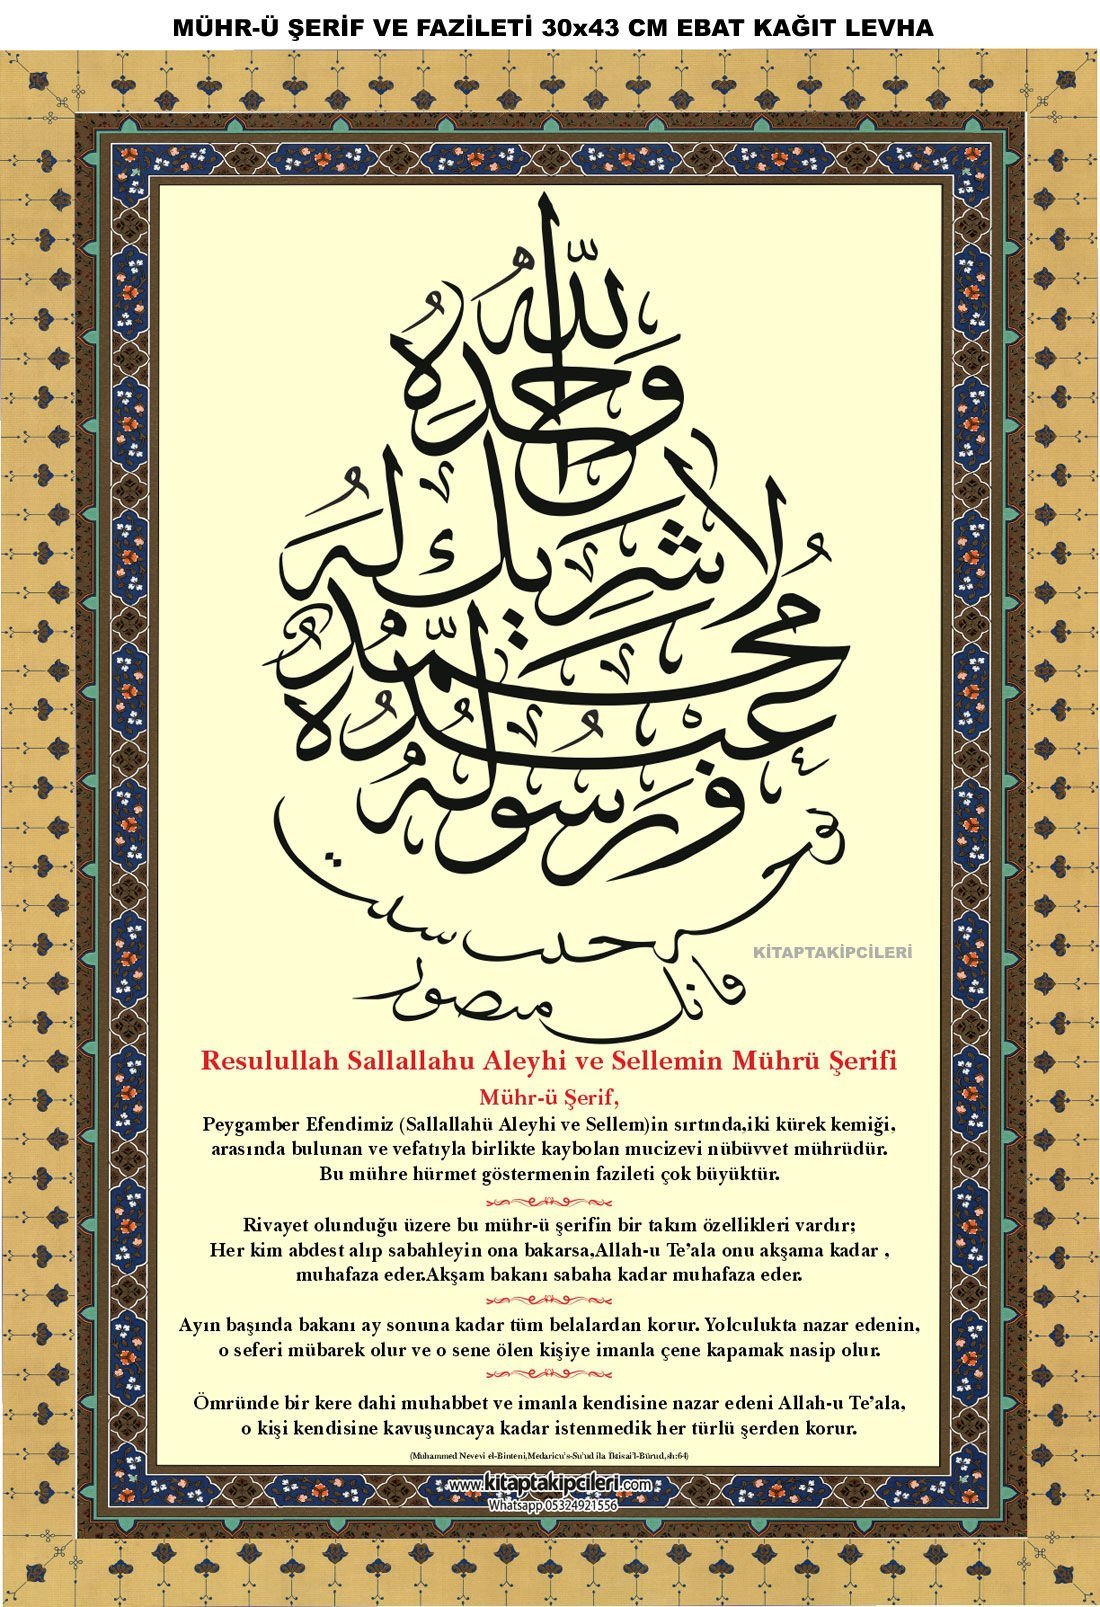 MÜHR-Ü ŞERİF VE FAZİLETİ 30x43 CM EBAT KAĞIT LEVHA
الله
وَحْدَهُ
لَا شَرِيكَ لَهُ
مُحَمَّدٌ
عَبْدُهُ
وَرَسُولُهُ
توجه حيث شئت
فانك منصور
KİTAPTAKİPCİLERİ
Resulullah Sallallahu Aleyhi ve Sellemin Mührü Şerifi
Mühr-ü Şerif,
Peygamber Efendimiz (Sallallahü Aleyhi ve Sellem)in sırtında,iki kürek kemiği,
arasında bulunan ve vefatıyla birlikte kaybolan mucizevi nübüvvet mührüdür.
Bu mühre hürmet göstermenin fazileti çok büyüktür.
Rivayet olunduğu üzere bu mühr-ü şerifin bir takım özellikleri vardır;
Her kim abdest alıp sabahleyin ona bakarsa,Allah-u Te’ala onu akşama kadar ,
muhafaza eder.Akşam bakanı sabaha kadar muhafaza eder.
Ayın başında bakanı ay sonuna kadar tüm belalardan korur. Yolculukta nazar edenin,
o seferi mübarek olur ve o sene ölen kişiye imanla çene kapamak nasip olur.
Ömründe bir kere dahi muhabbet ve imanla kendisine nazar edeni Allah-u Te’ala,
o kişi kendisine kavuşuncaya kadar istenmedik her türlü şerden korur.
(Muhammed Nevevi el-Binteni,Medaricu’s-Su’ud ila İktisai’l-Bürud,sh:64)
www.kitaptakipcileri.com
Whatsapp 05324921556